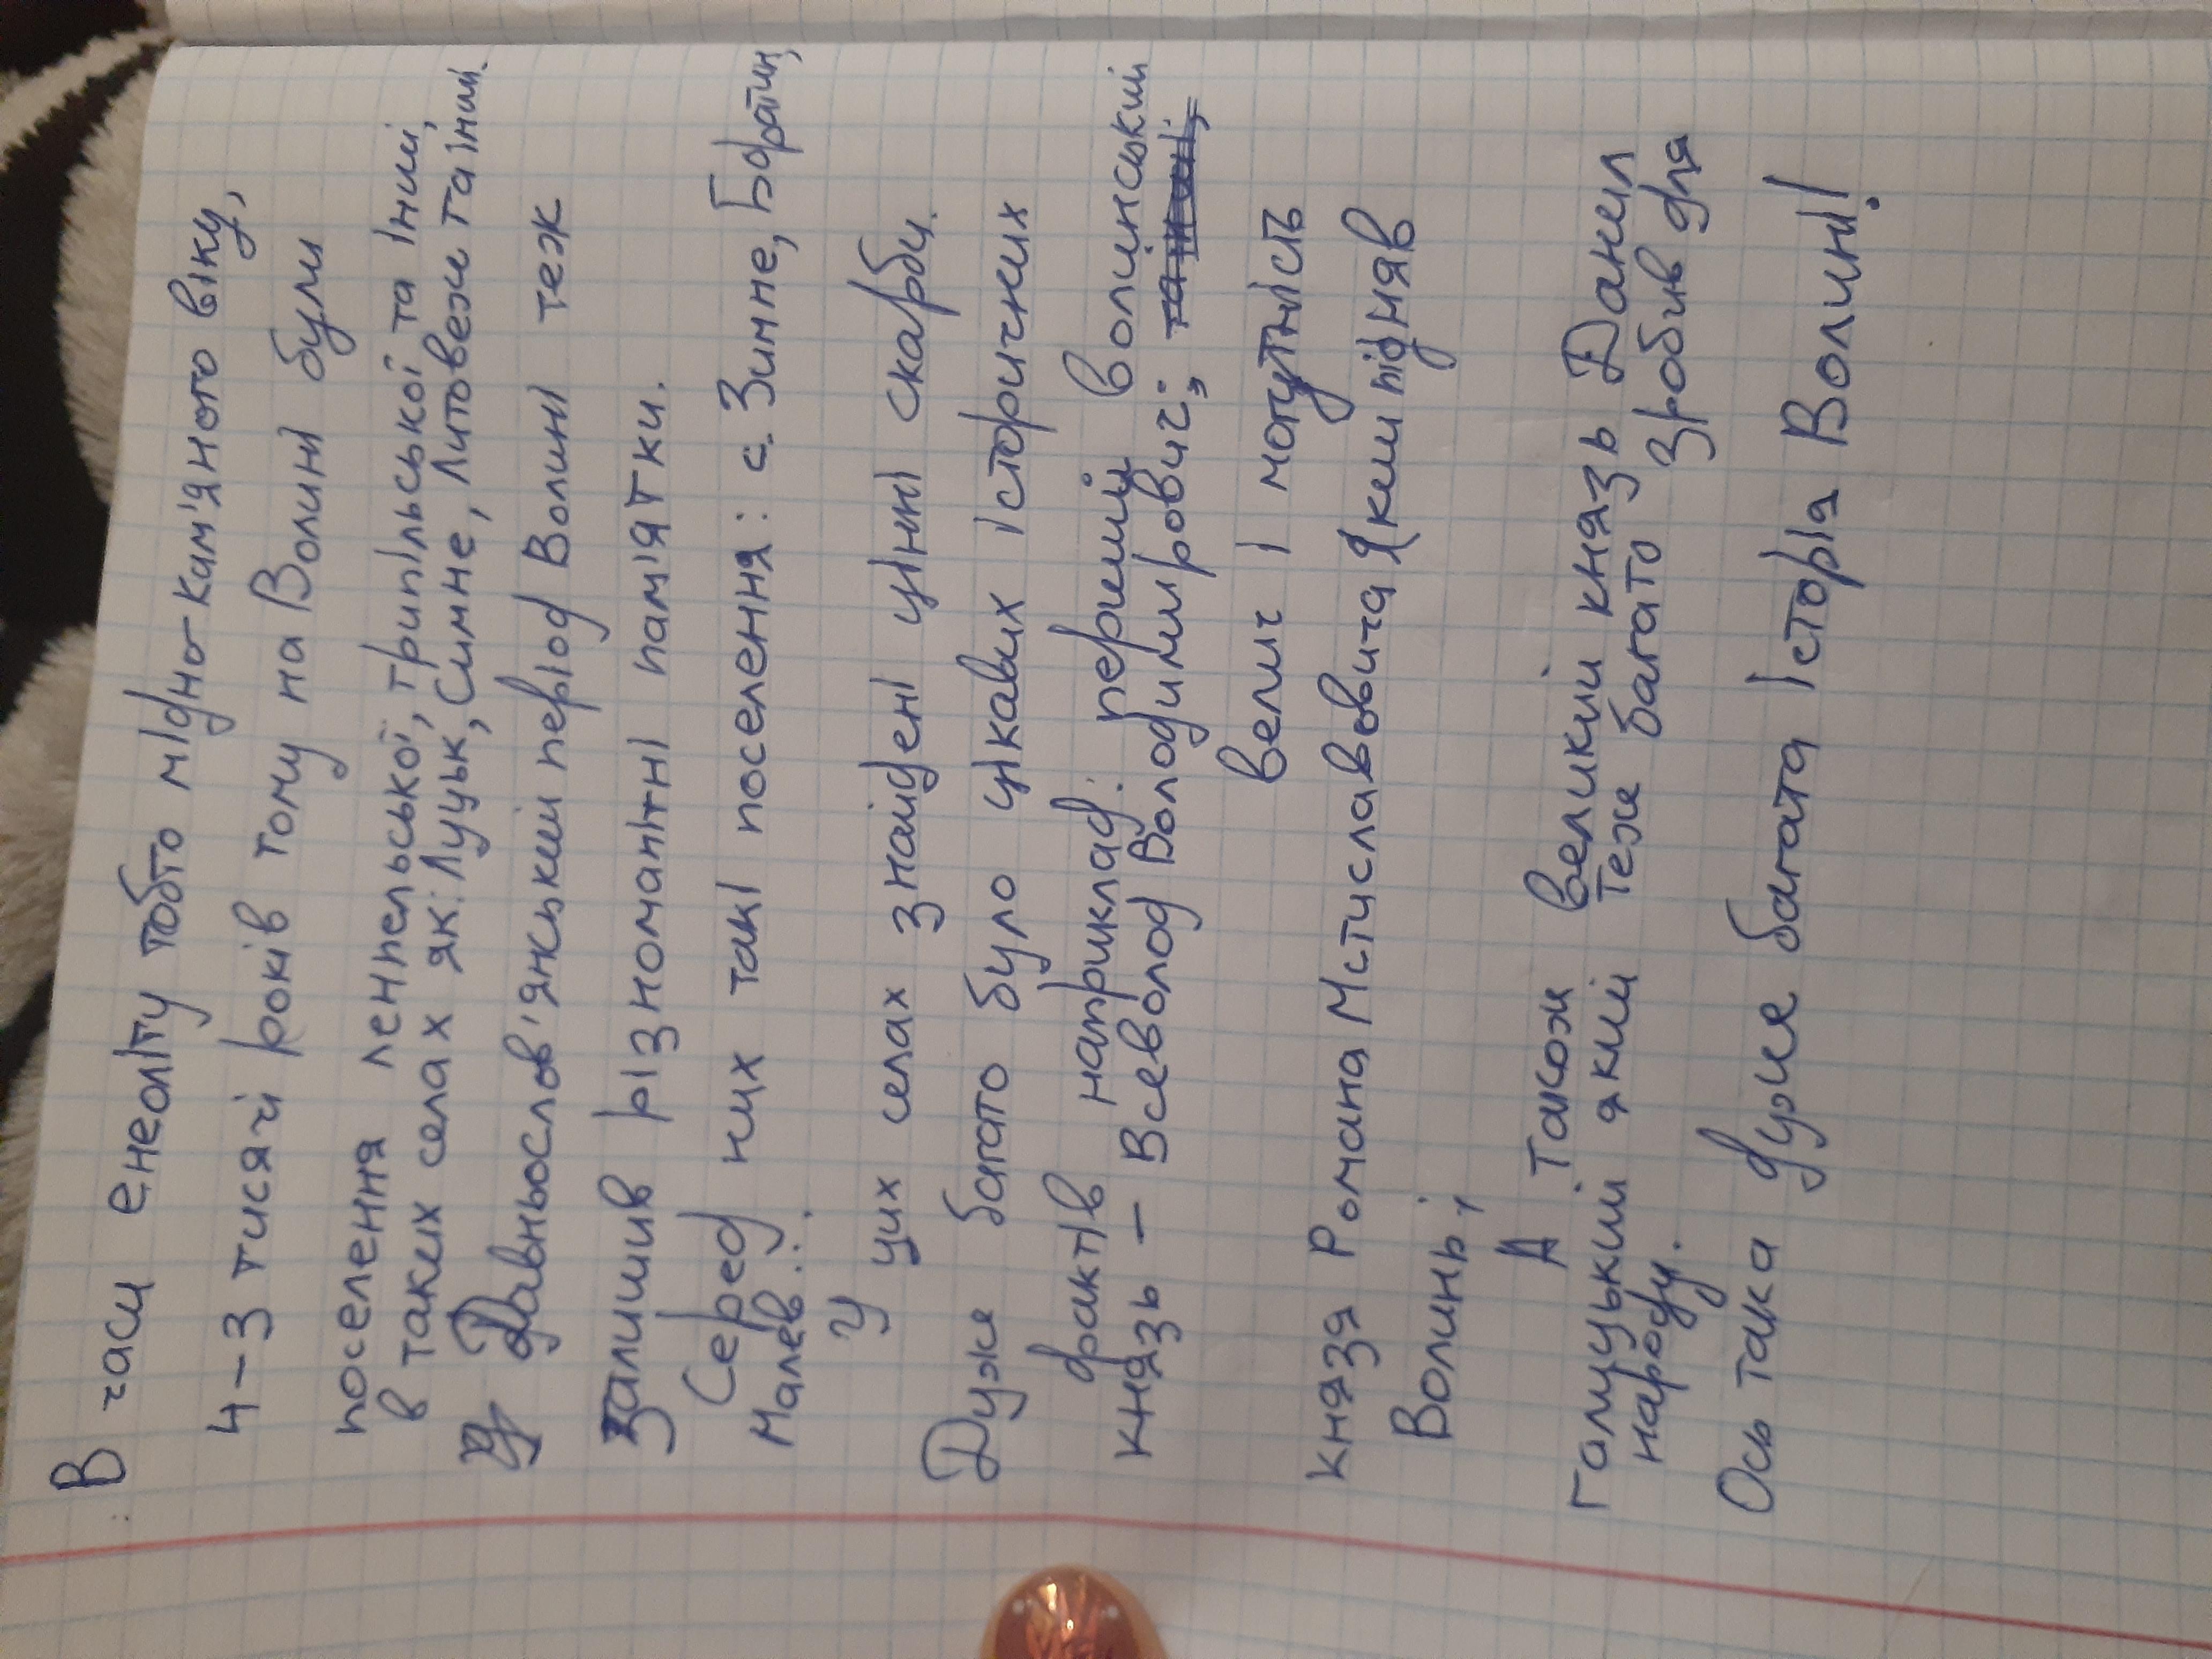 В часи енеоліту тобто мідно-кам'яного віку,
4-3 тисячі років тому на Волині були
поселення ленпельської, трипільської та інші,
в таких селах як: Луцьк, Симне, Литовеж та інші.
Давньослов'янський період Волині теж
залишив різноманітні пам'ятки.
Серед них такі поселення: с. Зимне, Боратин,
Малев...
У цих селах знайдені цінні скарби.
Дуже багато було цікавих історичних
фактів наприклад: перший волинський
князь - Всеволод Володимирович;
велич і могутність
князя Романа Мстиславовича який підняв
Волинь;
А також великий князь Данил
Галицький який теж багато зробив для
народу.
Ось така дуже багата історія Волині!